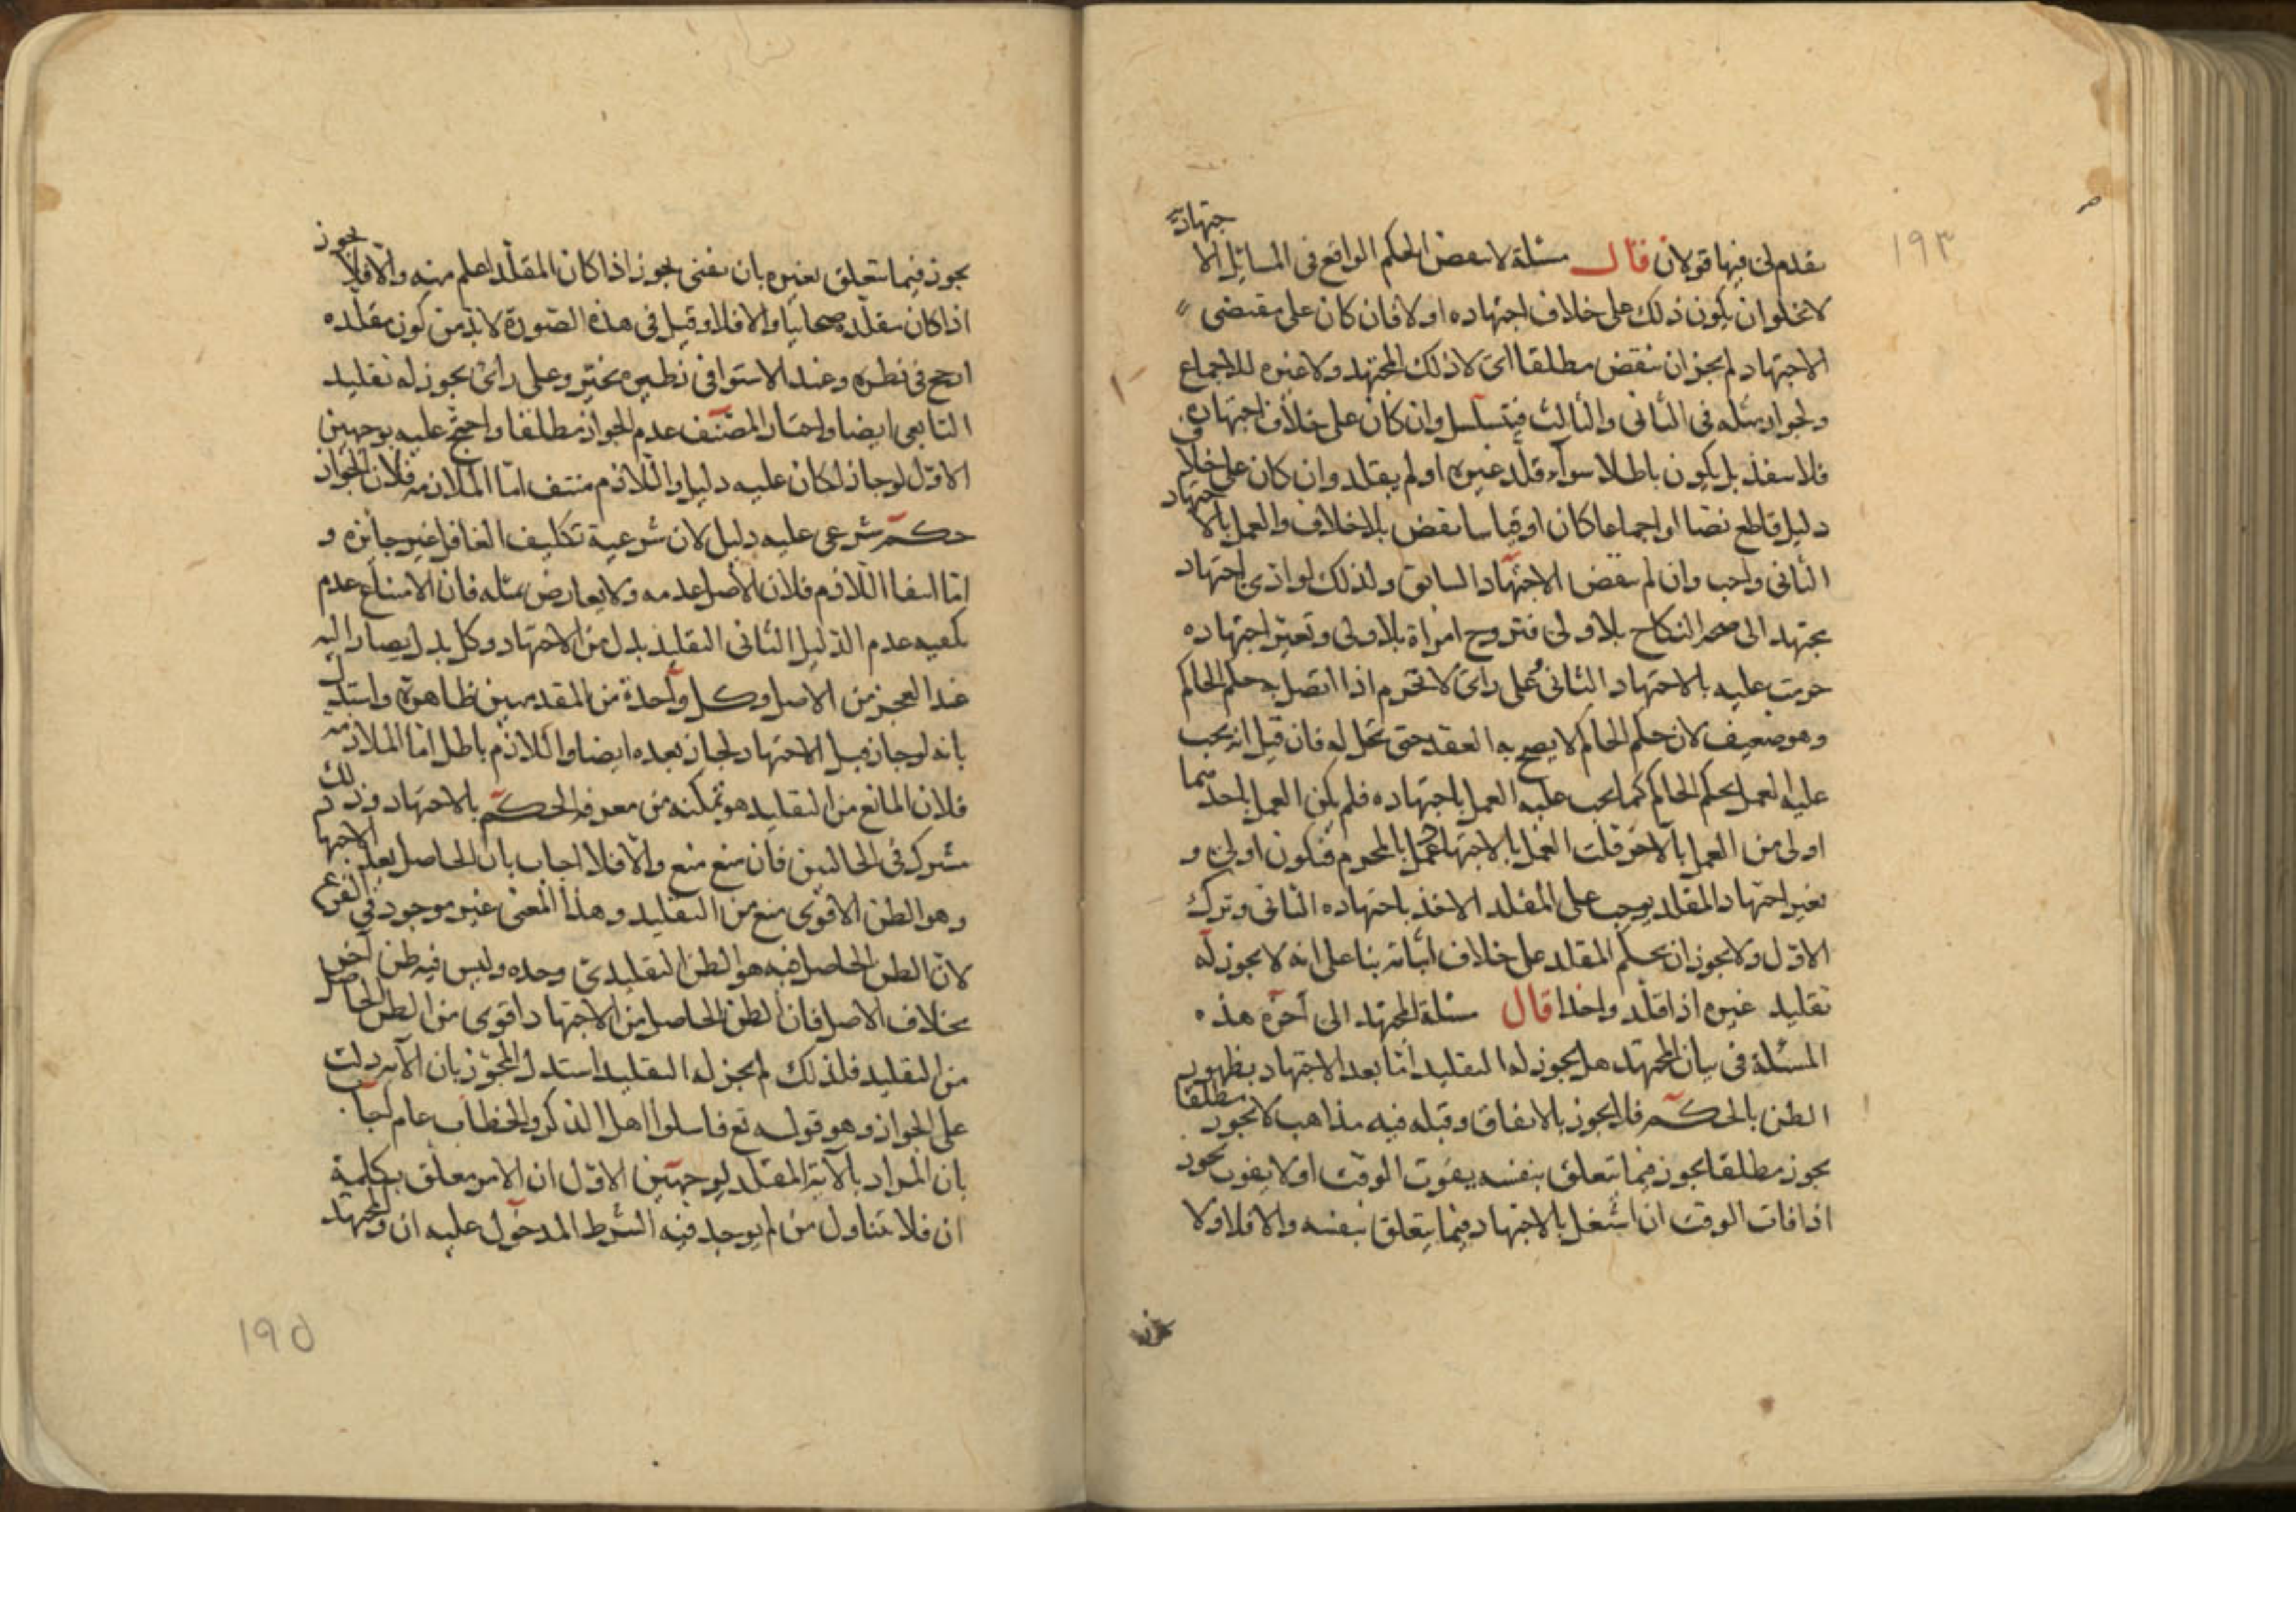 ١٩٣
تقدم لى فيها قولان قال مسئلة لا ينقض الحكم الواقع فى المسائل الاجتهادية
لا يخلوا ان يكون ذلك على خلاف اجتهاده او لا فان كان على مقتضى
الاجتهاد لم يجز ان ينقض مطلقا اى لا ذلك المجتهد ولا غيره للاجماع
ولجواز مثله فى الثانى والثالث فيتسلسل وان كان على خلاف اجتهاده
فلا ينفذ بل يكون باطلا سواء قلد غيره او لم يقلد وان كان على خلاف
دليل قاطع نصا او اجماعا كان او قياسا نقض بلا خلاف والعمل بالاجتهاد
الثانى واجب وان لم ينقض الاجتهاد السابق ولذلك لو ادى اجتهاد
مجتهد الى صحة النكاح بلا ولى فتزوج امراة بلا ولى وتغير اجتهاده
حرمت عليه بالاجتهاد الثانى وعلى راى لا تحرم اذا اتصل به حكم الحاكم
وهو ضعيف لان حكم الحاكم لا يصح به العقد حتى تحل له فان قيل انه يجب
عليه العمل بحكم الحاكم كما يجب عليه العمل باجتهاده فلم يكن العمل باحدهما
اولى من العمل بالآخر قلت العمل بالاجتهاد عمل بالمحرم فيكون اولى و
تغير اجتهاد المقلد يوجب على المقلد الاخذ باجتهاده الثانى وترك
الاول ولا يجوز ان يحكم المقلد على خلاف امامه بنا على انه لا يجوز له
تقليد غيره اذا قلد واحدا قال مسئلة المجتهد الى آخره هذه
المسئلة فى بيان المجتهد هل يجوز له التقليد اما بعد الاجتهاد بظهور
الظن بالحكم فلا يجوز بالاتفاق وقبله فيه مذاهب لا يجوز مطلقا
يجوز مطلقا يجوز فيما يتعلق بنفسه يفوت الوقت او لا يفوت يجوز
اذا فات الوقت ان اشتغل بالاجتهاد فيما يتعلق بنفسه والا فلا ولا
يجوز فيما يتعلق بغيره بان يفتى يجوز اذا كان المقلد اعلم منه والا فلا يجوز
اذا كان مقلده صحابيا والا فلا وقيل فى هذه الصورة لا بد من كون مقلده
ارجح فى نظره وعند الاستوا فى نظره يخير وعلى راى يجوز له تقليد
التابعى ايضا واختار المصنف عدم الجواز مطلقا واحتج عليه بوجهين
الاول لو جاز لكان عليه دليل واللازم منتف اما الملازمة فلان الجواز
حكم شرعى عليه دليل لان شرعية تكليف الغافل غير جائزه و
اما انتفا اللازم فلان الاصل عدمه ولا يعارض بمثله فان الامتناع عدم
يكفيه عدم الدليل الثانى التقليد بدل من الاجتهاد وكل بدل يصار اليه
عند العجز من الاصل وكل واحدة من المقدمتين ظاهرة واستدل
بانه لو جاز قبل الاجتهاد لجاز بعده ايضا واللازم باطل اما الملازمه
فلان المانع من التقليد هو تمكنه من معرفه الحكم بالاجتهاد وذلك
مشترك فى الحالتين فان منع منع والا فلا اجاب بان الحاصل بعد الاجتهاد
وهو الظن الاقوى منع من التقليد وهذا المعنى غير موجود فى الفرع
لان الظن الحاصل فيه هو الظن التقليدى وحده وليس فيه ظن آخر
بخلاف الاصل فان الظن الحاصل من الاجتهاد اقوى من الظن الحاصل
من التقليد فلذلك لم يجز له التقليد استدل المجوز بان الآية دلت
على الجواز وهو قوله تع فاسلوا اهل الذكر والخطاب عام اجاب
بان المراد بالآية المقلد لوجهين الاول ان الامر معلق بكلمة
ان فلا يتناول من لم يوجد فيه الشرط المدخول عليه ان والمجتهد
١٩٥